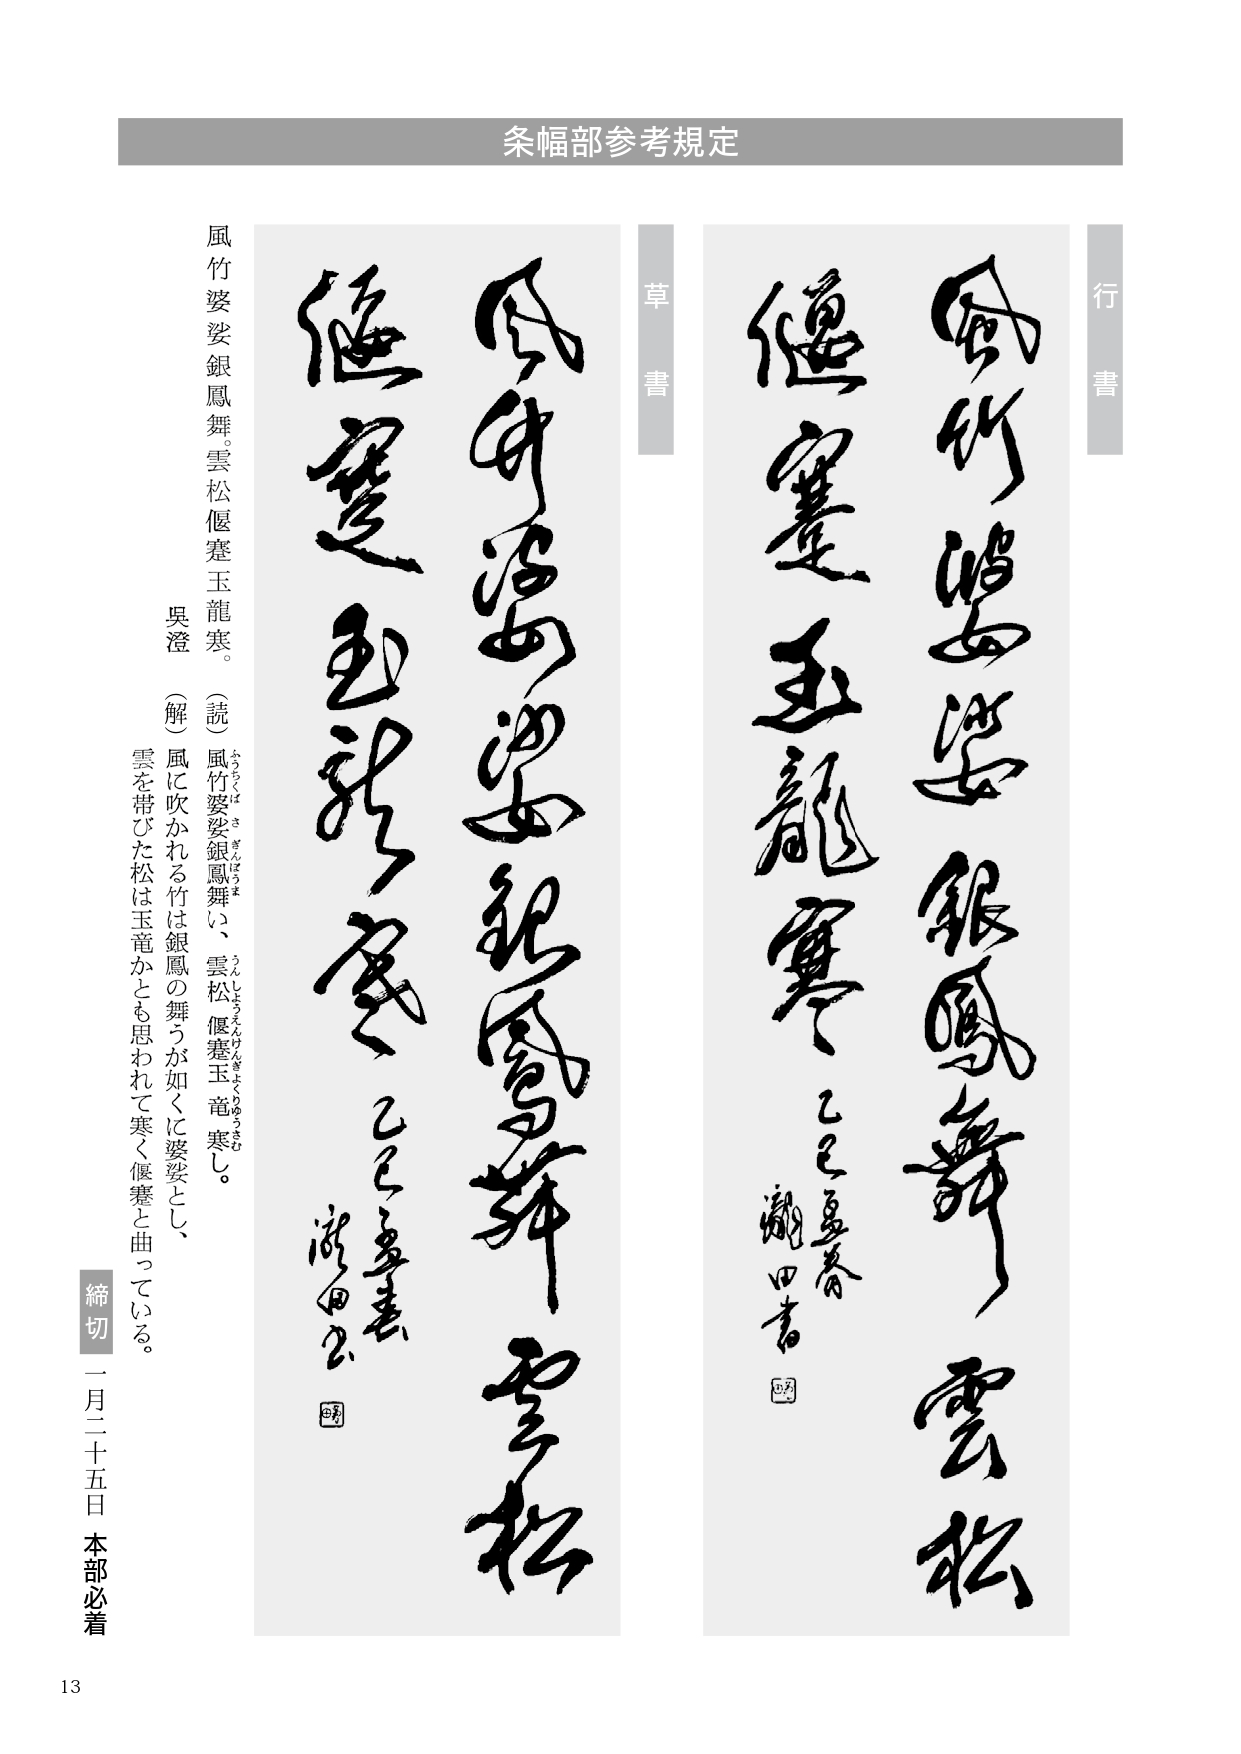 条幅部参考規定
行書
風竹婆娑銀鳳舞雲松
偃蹇玉龍寒 乙巳孟春
瀧田書
草書
風竹婆娑銀鳳舞雲松
偃蹇玉龍寒 乙巳孟春
瀧田書
風竹婆娑銀鳳舞。雲松偃蹇玉龍寒。
呉澄
（読）風竹婆娑銀鳳舞い、雲松偃蹇玉竜寒し。
ふうちくばさぎんぽうま うんしょうえんけんぎょくりゅうさむ
（解）風に吹かれる竹は銀鳳の舞うが如くに婆娑とし、
雲を帯びた松は玉竜かとも思われて寒く偃蹇と曲っている。
締切 一月二十五日 本部必着
13